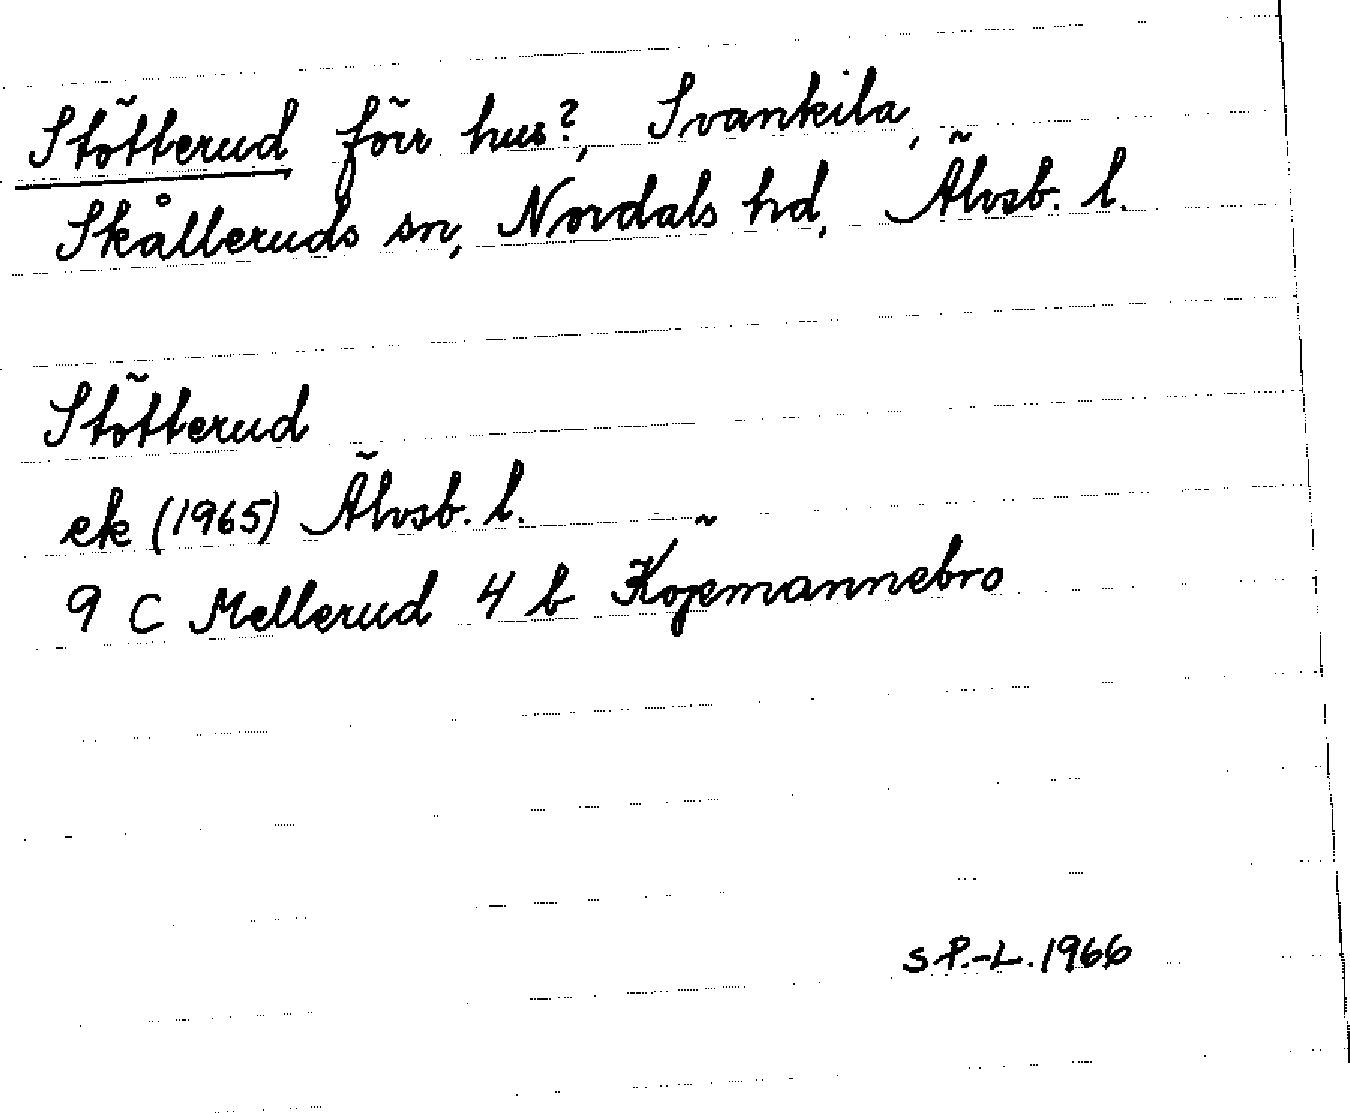 Stötterud förr hus?, Svankila,
Skålleruds sn, Nordals hd, Älvsb. l.
Stötterud
ek (1965) Älvsb. l.
9 C Mellerud 4 b Köpmannebro
S P.-L. 1966